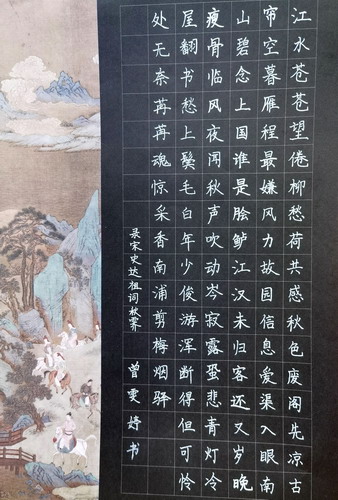 江水苍苍望倦柳愁荷共感秋色废阁先凉古
帘空暮雁程最嫌风力故园信息爱渠入眼南
山碧念上国谁是脍鲈江汉未归客还又岁晚
瘦骨临风夜闻秋声吹动岑寂露蛩悲青灯冷
屋翻书愁上鬓毛白年少俊游浑断得但可怜
处无奈苒苒魂惊采香南浦剪梅烟驿
录宋史达祖词秋霁 曾雯婷书